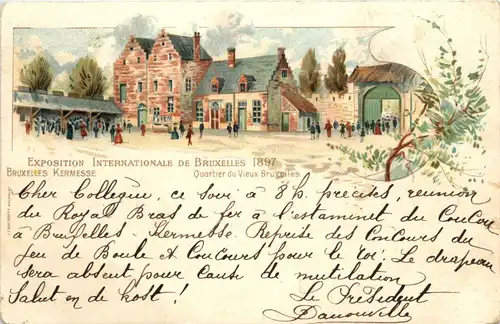 EXPOSITION INTERNATIONALE DE BRUXELLES 1897
BRUXELLES KERMESSE
Quartier du Vieux Bruxelles
Cher Collègue, ce soir à 8 h. précises, reunion
du Royal Bras de fer à l'estaminet du Coucou
à Bruxelles - Kermesse. Reprise des Concours du
jeu de Boule et Concours pour le toi. Le drapeau
sera absent pour cause de mutilation.
Salut en de kost !
Le Président